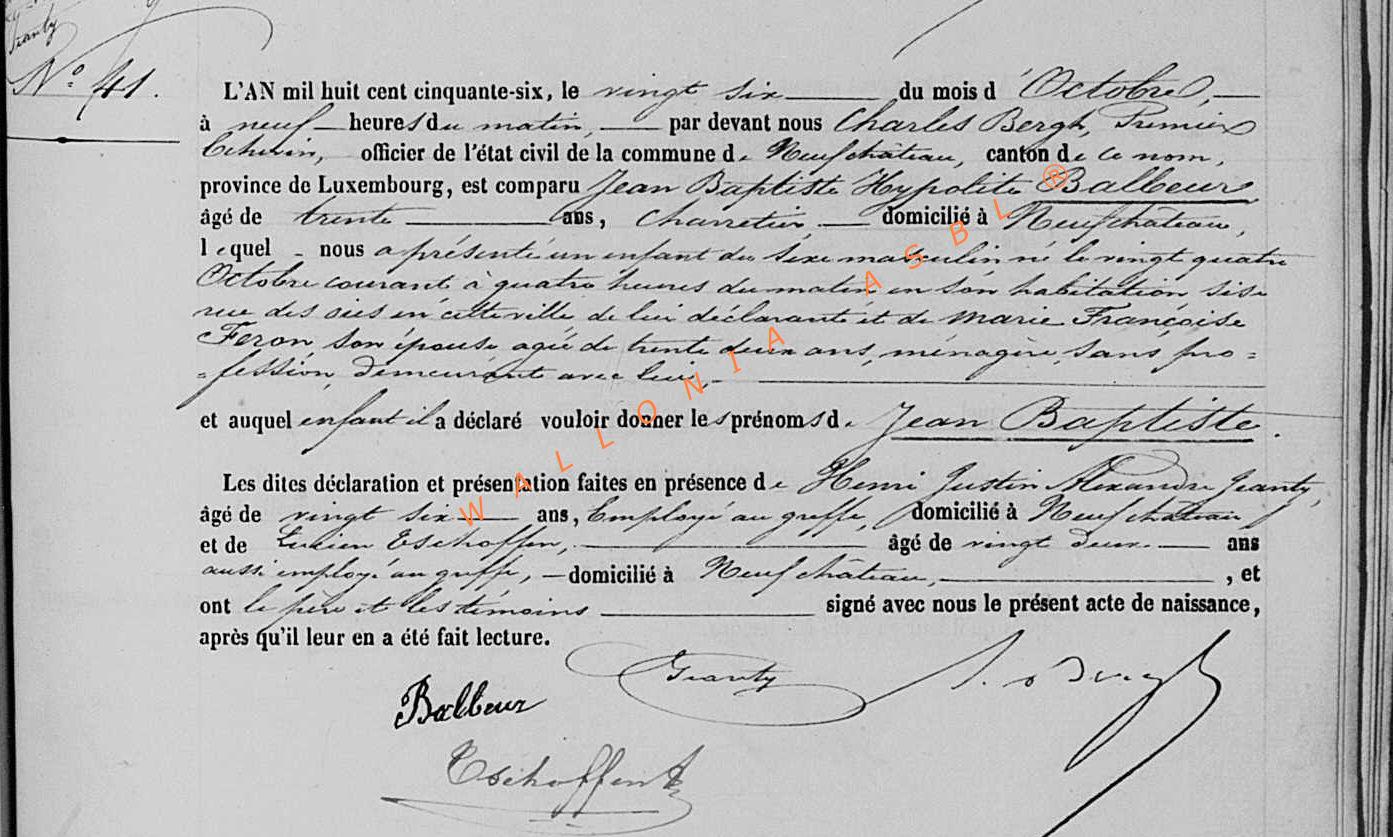 Jeanty
N° 41.
L'AN mil huit cent cinquante-six, le vingt six du mois d'Octobre,
à neuf heures du matin, par devant nous Charles Bergh, Premier
Echevin, officier de l'état civil de la commune de Neufchâteau, canton de ce nom,
province de Luxembourg, est comparu Jean Baptiste Hypolite Balbeur
âgé de trente ans, Charretier domicilié à Neufchâteau,
lequel nous a présenté un enfant du sexe masculin né le vingt quatre
Octobre courant à quatre heures du matin en son habitation sise
rue des oies en cette ville de lui déclarant et de Marie Françoise
Feron, son épouse agée de trente deux ans, ménagère, sans pro=
=fession, demeurant avec lui,
et auquel enfant il a déclaré vouloir donner les prénoms de Jean Baptiste.
Les dites déclaration et présentation faites en présence de Henri Justin Alexandre Jeanty,
âgé de vingt six ans, Employé au greffe, domicilié à Neufchâteau
et de Lucien Tschoffen, âgé de vingt deux ans
aussi employé au greffe, domicilié à Neufchâteau, , et
ont le père et les témoins signé avec nous le présent acte de naissance,
après qu'il leur en a été fait lecture.
Jeanty
Balbeur
Tschoffen
WALLONIA ASBL ®